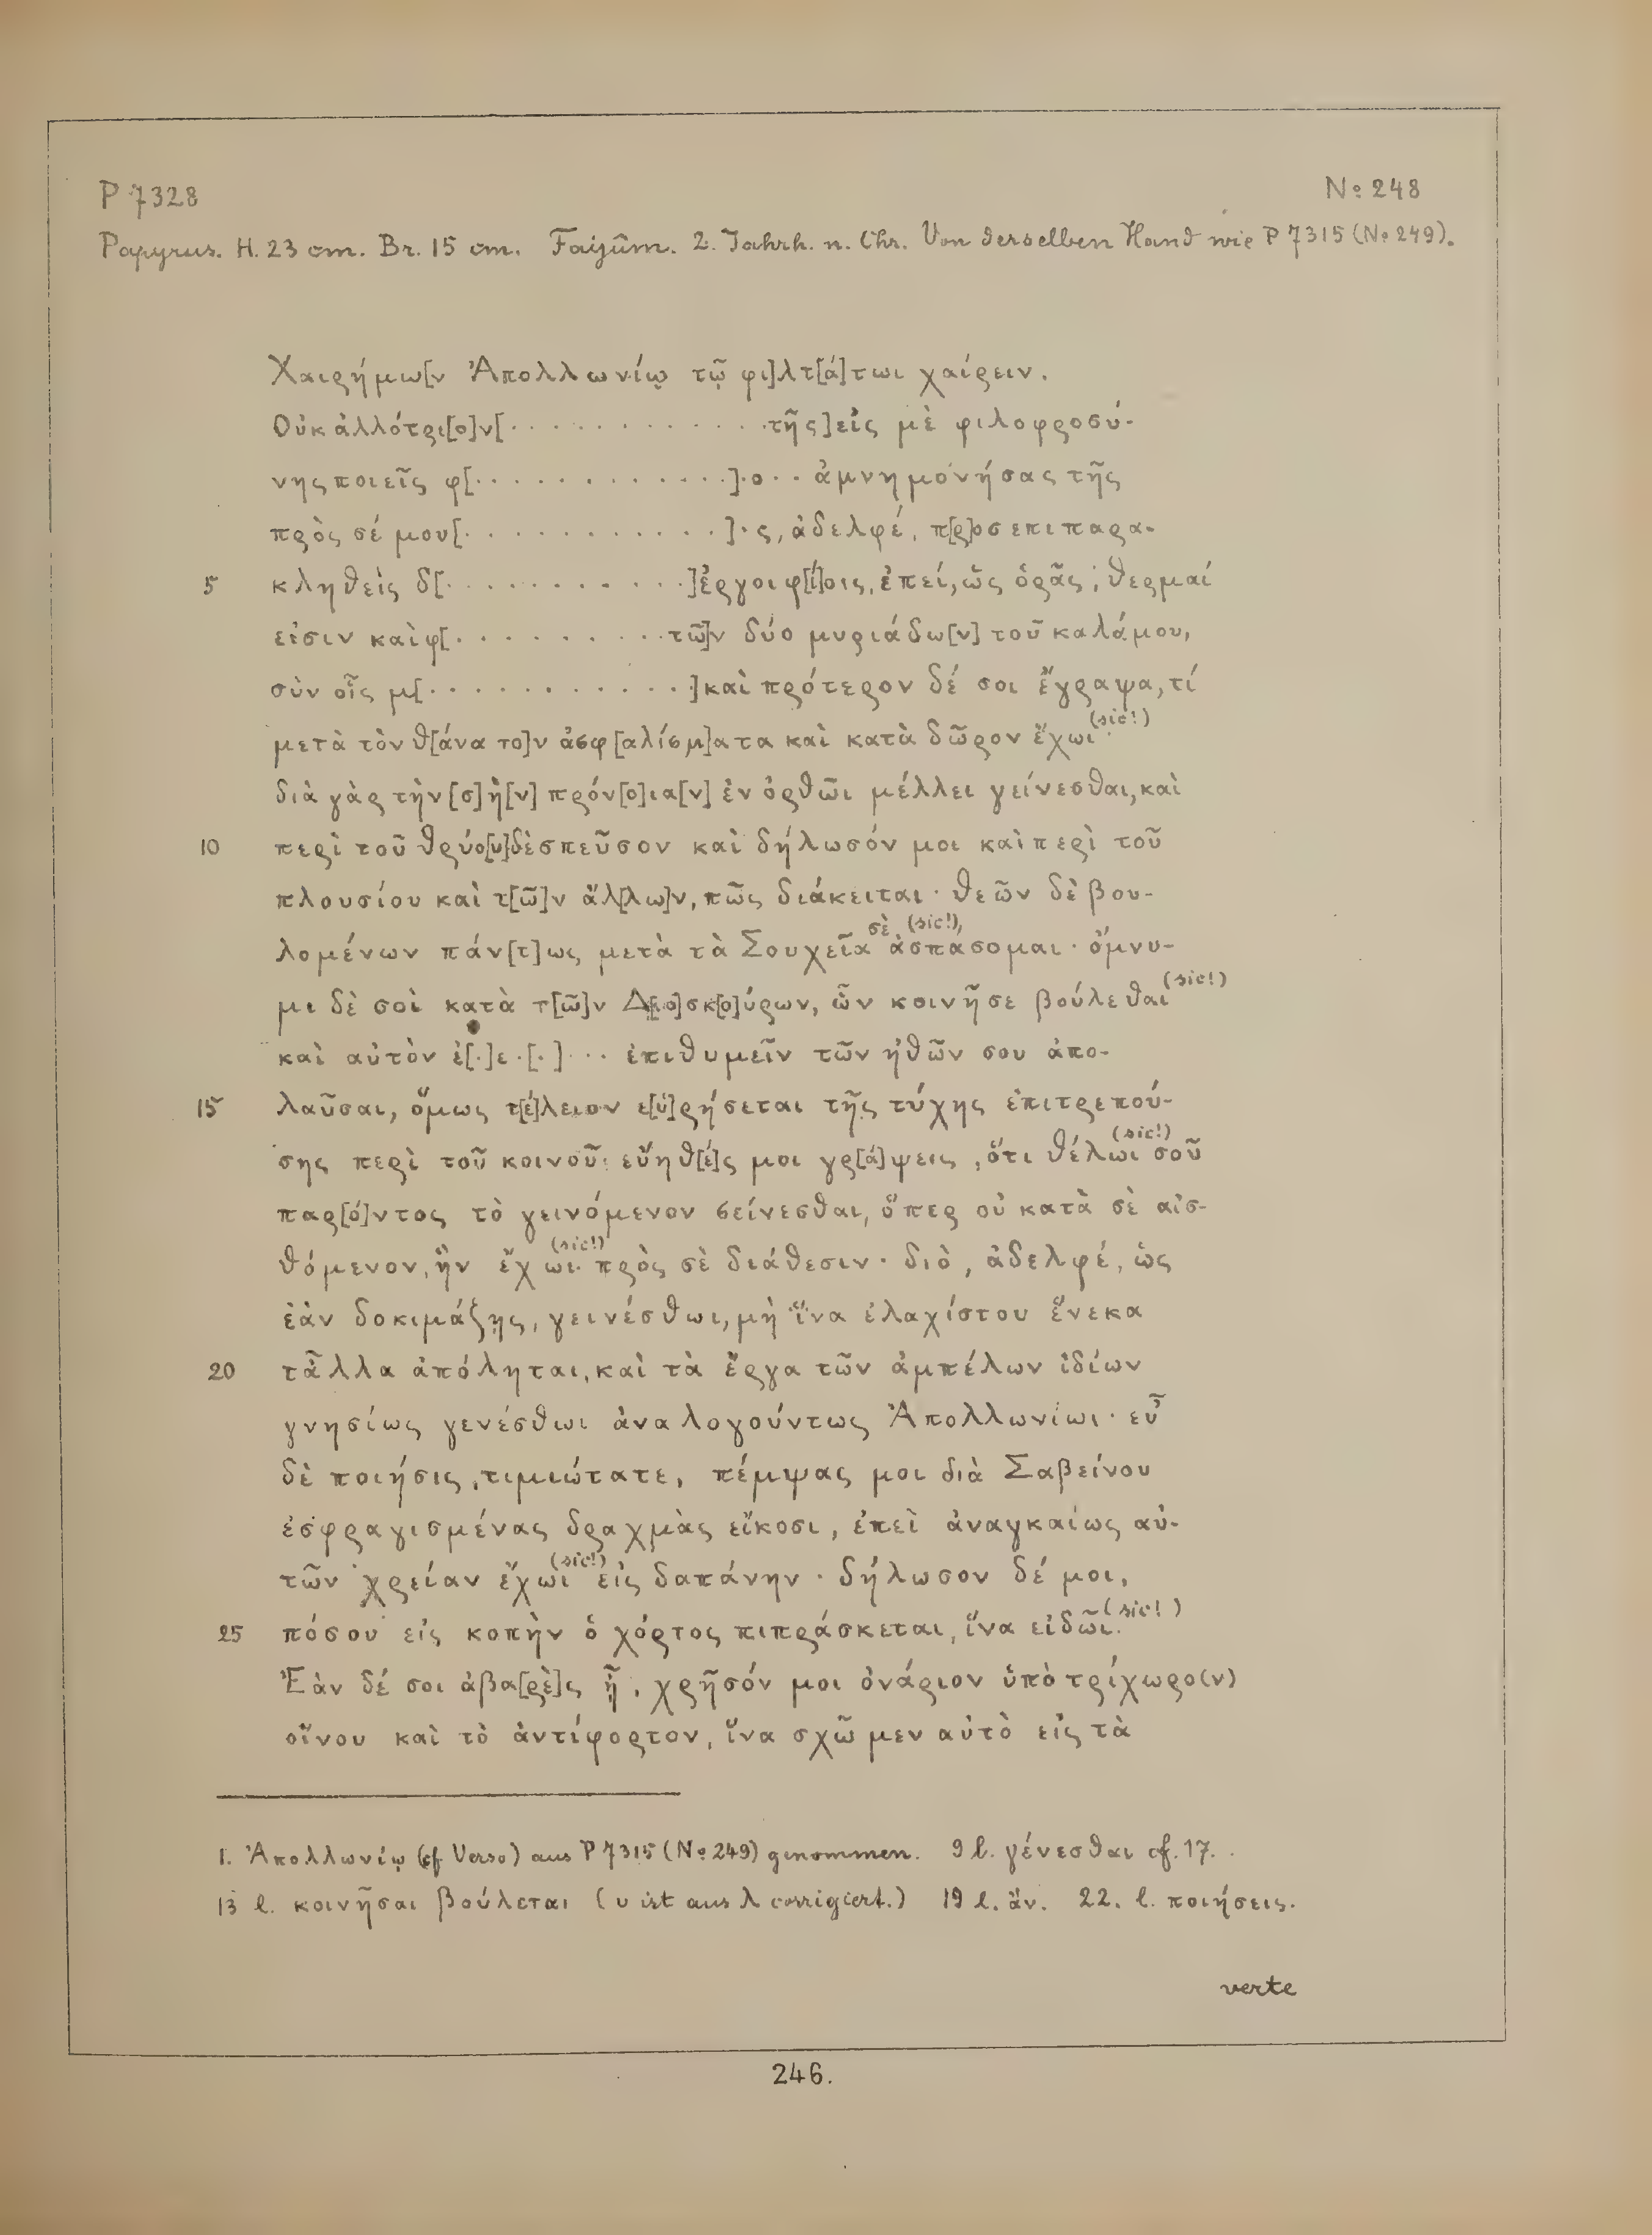 P 7328
No 248
Papyrus. H. 23 cm. Br. 15 cm. Faijûm. 2. Jahrh. n. Chr. Von derselben Hand wie P 7315 (No 249).
Χαιρήμω[ν Ἀπολλωνίῳ τῷ φι]λτ[ά]τωι χαίρειν.
Οὐκ ἀλλότρι[ο]ν[· · · · · · · · · · · · · τῆς] εἰς μὲ φιλοφροσύ-
νης ποιεῖς φ[· · · · · · · · · · · ·]·ο·· ἀμνημονήσας τῆς
πρὸς σέ μου[· · · · · · · · · · · ·]·ς, ἀδελφέ, π[ρ]οσεπιπαρα-
5 κληθεὶς δ[· · · · · · · · · · · ·]ἐργοιφ[ί]οις, ἐπεί, ὡς ὁρᾷς, θερμαί
εἰσιν καὶ φ[· · · · · · · · · · τῶ]ν δύο μυριάδω[ν] τοῦ καλάμου,
σὺν οἷς μ[· · · · · · · · · · · ·] καὶ πρότερον δέ σοι ἔγραψα, τί
μετὰ τὸν θ[άνατο]ν ἀσφ[αλίσμ]ατα καὶ κατὰ δῶρον ἔχωι (sic!)·
διὰ γὰρ τὴν [σ]ὴ[ν] πρόν[ο]ια[ν] ἐν ὀρθῶι μέλλει γείνεσθαι, καὶ
10 περὶ τοῦ θρύο[υ] δὲ σπεῦσον καὶ δήλωσόν μοι καὶ περὶ τοῦ
πλουσίου καὶ τ[ῶ]ν ἄλ[λω]ν, πῶς διάκειται· θεῶν δὲ βου-
λομένων πάν[τ]ως μετὰ τὰ Σουχεῖα σὲ (sic!) ἀσπάσομαι· ὄμνυ-
μι δὲ σοὶ κατὰ τ[ῶ]ν Δ[ιο]σκ[ο]ύρων, ὧν κοινῆσε βούλεθαι (sic!)
καὶ αὐτὸν ἐ[·]ε·[·]··· ἐπιθυμεῖν τῶν ἠθῶν σου ἀπο-
15 λαῦσαι, ὅμως τ[έ]λειον ε[ὑ]ρήσεται τῆς τύχης ἐπιτρεπού-
σης περὶ τοῦ κοινοῦ· εὔηθ[έ]ς μοι γρ[ά]ψεις, ὅτι θέλωι (sic!) σοῦ
παρ[ό]ντος τὸ γεινόμενον γείνεσθαι, ὅπερ οὐ κατὰ σὲ αἰσ-
θόμενον, ἣν ἔχωι (sic!) πρὸς σὲ διάθεσιν· διὸ, ἀδελφέ, ὡς
ἐὰν δοκιμάζῃς, γεινέσθωι, μὴ ἵνα ἐλαχίστου ἕνεκα
20 τἆλλα ἀπόληται, καὶ τὰ ἔργα τῶν ἀμπέλων ἰδίων
γνησίως γενέσθωι ἀναλογούντως Ἀπολλωνίωι· εὖ
δὲ ποιήσις, τιμιώτατε, πέμψας μοι διὰ Σαβείνου
ἐσφραγισμένας δραχμὰς εἴκοσι, ἐπεὶ ἀναγκαίως αὐ-
τῶν χρείαν ἔχωι (sic!) εἰς δαπάνην· δήλωσον δέ μοι,
25 πόσου εἰς κοπὴν ὁ χόρτος πιπράσκεται, ἵνα εἰδῶι (sic!).
Ἐὰν δέ σοι ἀβα[ρὲ]ς ᾖ, χρῆσόν μοι ὀνάριον ὑπὸ τρίχωρο(ν)
οἴνου καὶ τὸ ἀντίφορτον, ἵνα σχῶμεν αὐτὸ εἰς τὰ
1. Ἀπολλωνίῳ (cf Verso) aus P 7315 (No 249) genommen. 9 l. γένεσθαι cf. 17.
13 l. κοινῆσαι βούλεται (υ ist aus λ corrigiert.) 19 l. ἄν. 22. l. ποιήσεις.
verte
246.